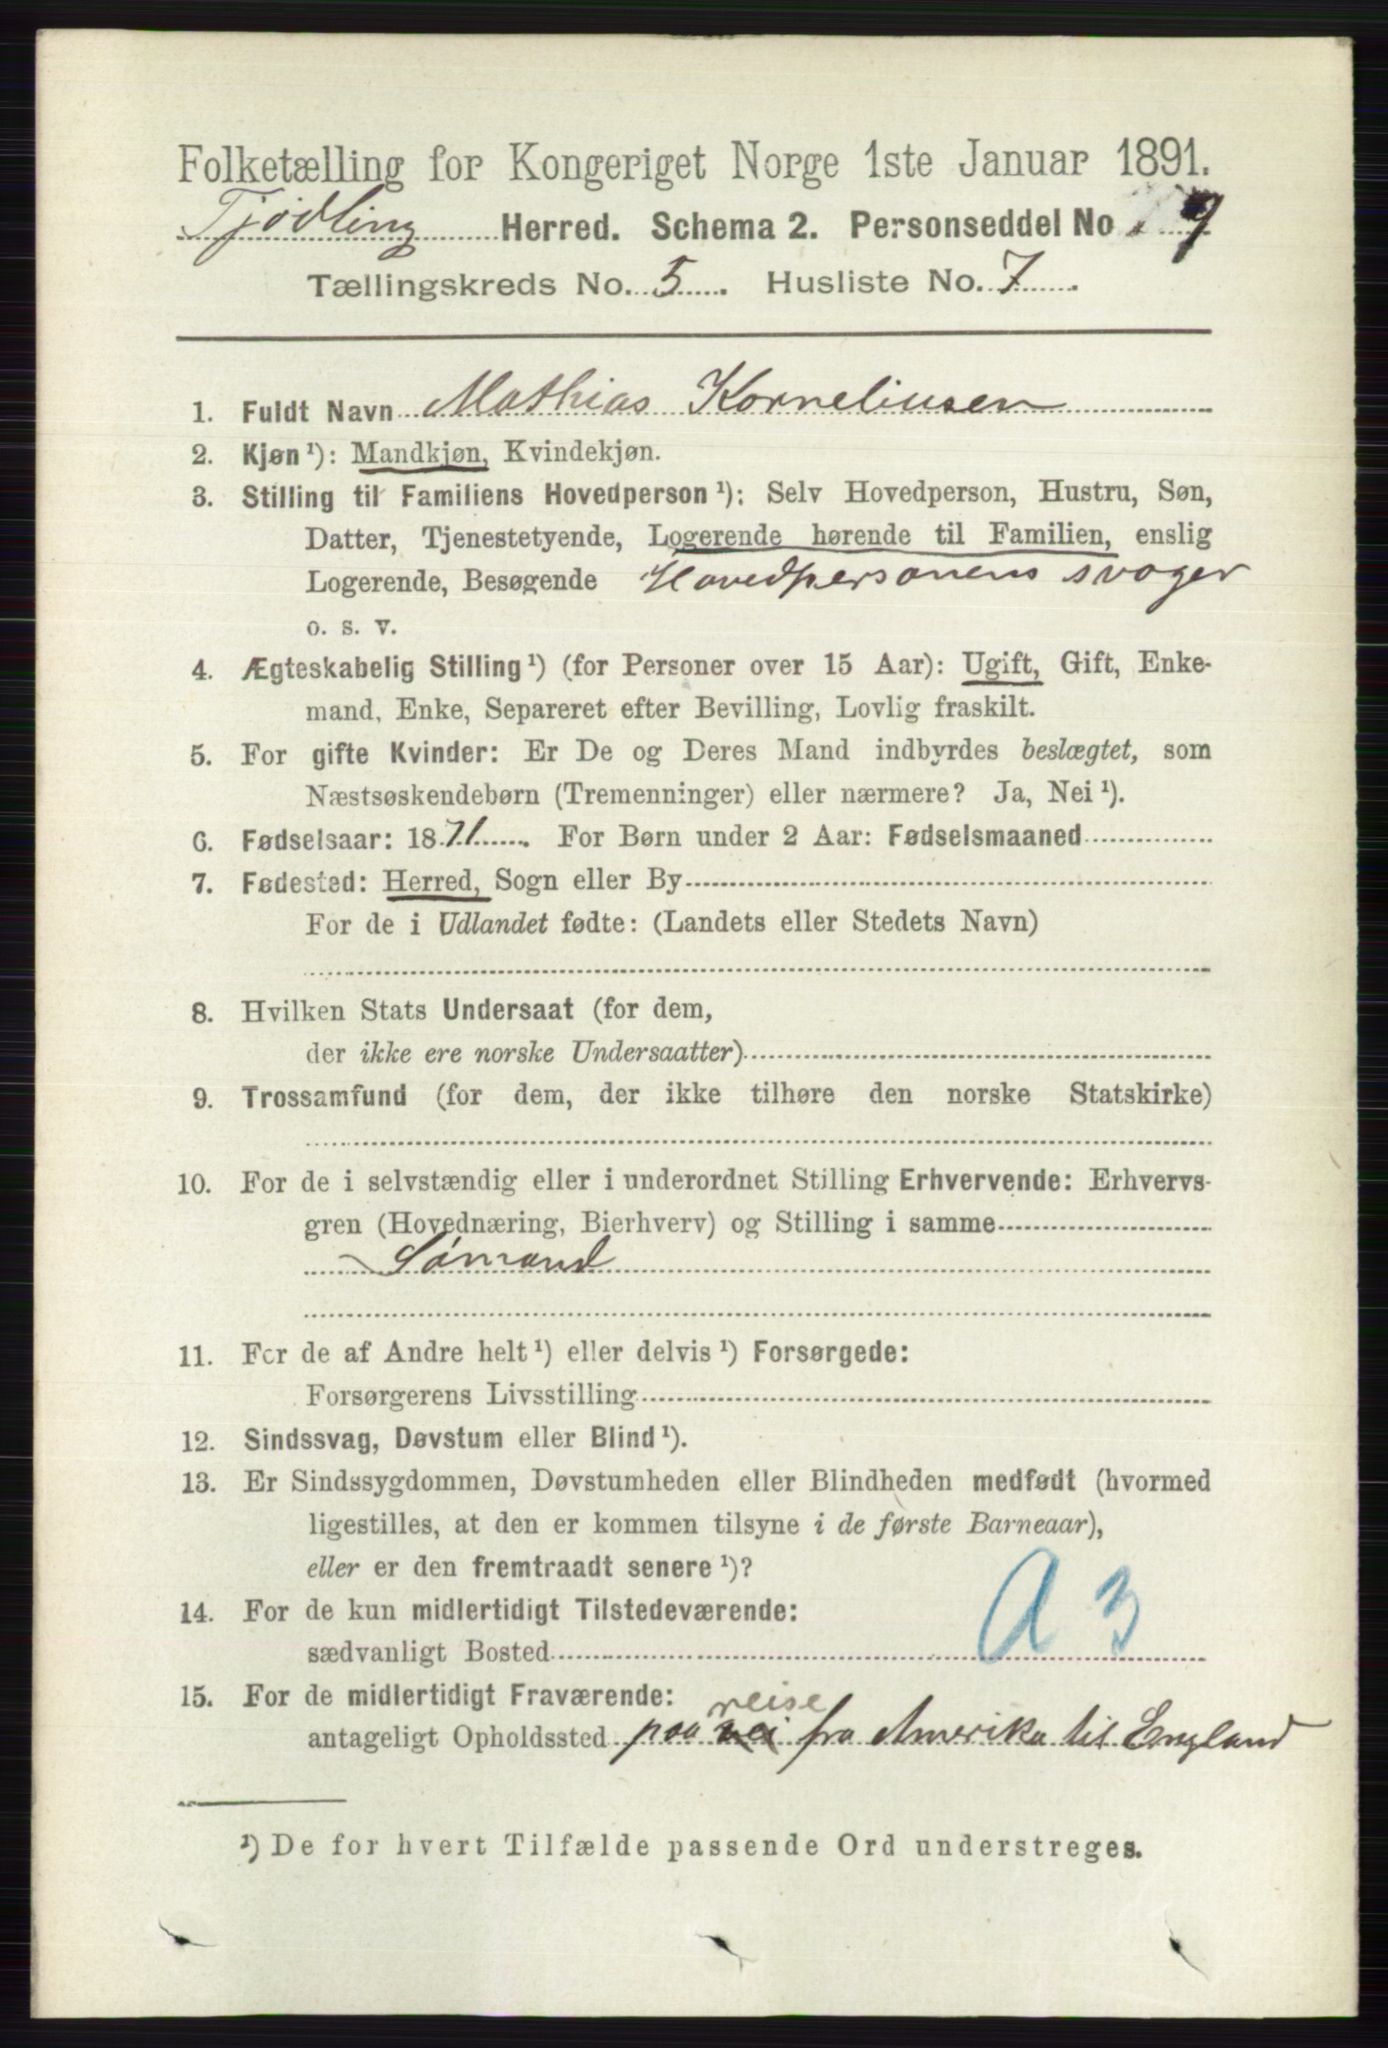 Folketælling for Kongeriget Norge 1ste Januar 1891.
Tjödling Herred. Schema 2. Personseddel No 9
Tællingskreds No. 5. Husliste No. 7.
1. Fuldt Navn Mathias Korneliusen
2. Kjøn¹): Mandkjøn, Kvindekjøn.
3. Stilling til Familiens Hovedperson¹): Selv Hovedperson, Hustru, Søn,
Datter, Tjenestetyende, Logerende hørende til Familien, enslig
Logerende, Besøgende Hovedpersonens svoger
o. s. v.
4. Ægteskabelig Stilling¹) (for Personer over 15 Aar): Ugift, Gift, Enke-
mand, Enke, Separeret efter Bevilling, Lovlig fraskilt.
5. For gifte Kvinder: Er De og Deres Mand indbyrdes beslægtet, som
Næstsøskendebørn (Tremenninger) eller nærmere? Ja, Nei¹).
6. Fødselsaar: 1871. For Børn under 2 Aar: Fødselsmaaned
7. Fødested: Herred, Sogn eller By
For de i Udlandet fødte: (Landets eller Stedets Navn)
8. Hvilken Stats Undersaat (for dem,
der ikke ere norske Undersaatter)
9. Trossamfund (for dem, der ikke tilhøre den norske Statskirke)
10. For de i selvstændig eller i underordnet Stilling Erhvervende: Erhvervs-
gren (Hovednæring, Bierhverv) og Stilling i samme
Sömand
11. For de af Andre helt¹) eller delvis¹) Forsørgede:
Forsørgerens Livsstilling
12. Sindssvag, Døvstum eller Blind¹).
13. Er Sindssygdommen, Døvstumheden eller Blindheden medfødt (hvormed
ligestilles, at den er kommen tilsyne i de første Barneaar),
eller er den fremtraadt senere¹)?
14. For de kun midlertidigt Tilstedeværende:
sædvanligt Bosted A 3
15. For de midlertidigt Fraværende: reise
antageligt Opholdssted paa nei fra Amerika til England
¹) De for hvert Tilfælde passende Ord understreges.